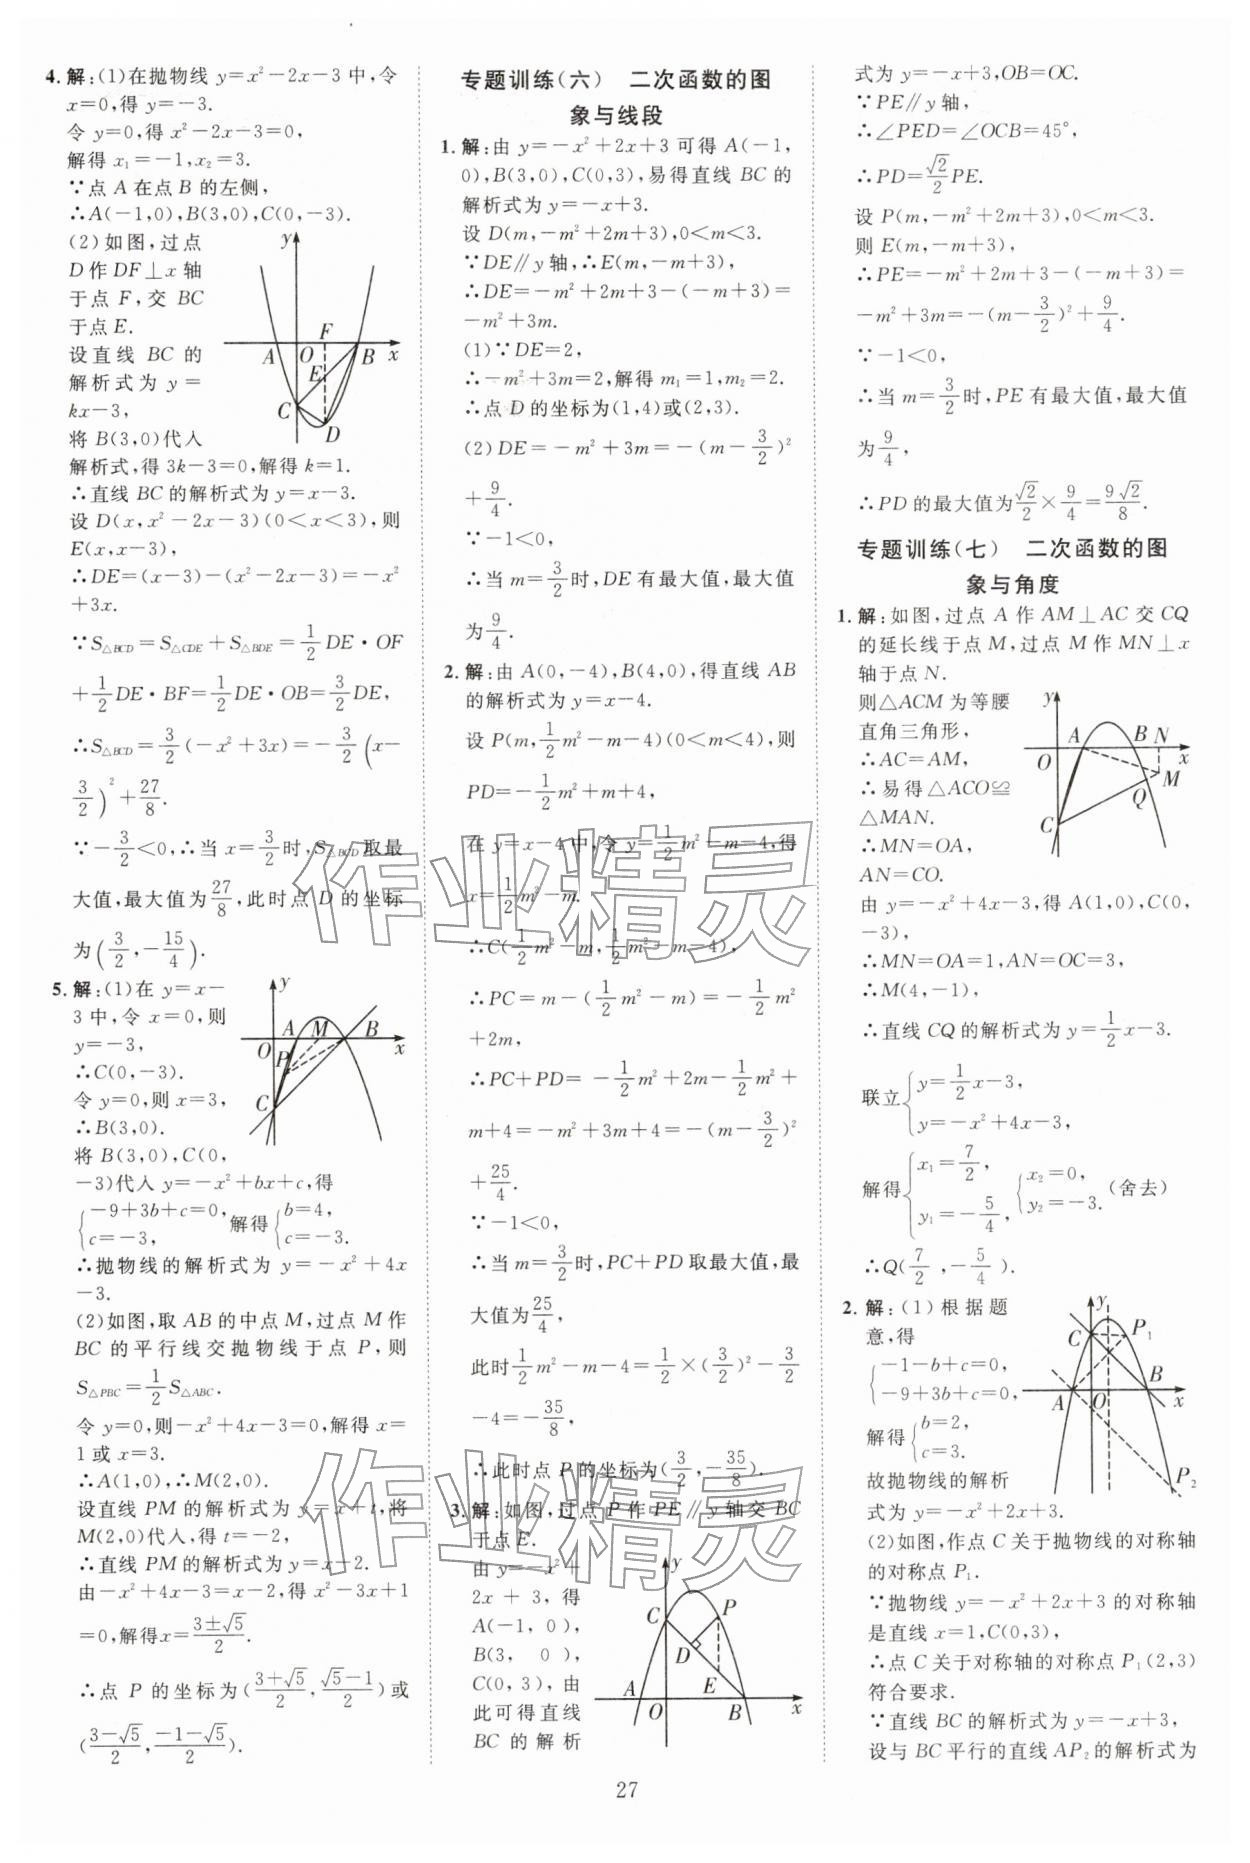 4. 解:(1)在抛物线 y=x²-2x-3 中,令
x=0,得 y=-3.
令 y=0,得 x²-2x-3=0,
解得 x₁=-1,x₂=3.
∵点 A 在点 B 的左侧,
∴A(-1,0),B(3,0),C(0,-3).
(2)如图,过点
D 作 DF⊥x 轴
于点 F,交 BC
于点 E.
设直线 BC 的
解析式为 y=
kx-3,
将 B(3,0)代入
y
F
A O B x
E
C
D
解析式,得 3k-3=0,解得 k=1.
∴直线 BC 的解析式为 y=x-3.
设 D(x,x²-2x-3)(0<x<3),则
E(x,x-3),
∴DE=(x-3)-(x²-2x-3)=-x²
+3x.
∵S△BCD=S△CDE+S△BDE=1/2 DE·OF
+1/2 DE·BF=1/2 DE·OB=3/2 DE,
∴S△BCD=3/2(-x²+3x)=-3/2(x-
3/2)²+27/8.
∵-3/2<0,∴当 x=3/2时,S△BCD取最
大值,最大值为27/8,此时点 D 的坐标
为(3/2,-15/4).
5. 解:(1)在 y=x-
3 中,令 x=0,则
y=-3,
∴C(0,-3).
令 y=0,则 x=3,
∴B(3,0).
将 B(3,0),C(0,
y
A M B
O x
P
C
-3)代入 y=-x²+bx+c,得
{-9+3b+c=0, c=-3, 解得{b=4, c=-3.
∴抛物线的解析式为 y=-x²+4x
-3.
(2)如图,取 AB 的中点 M,过点 M 作
BC 的平行线交抛物线于点 P,则
S△PBC=1/2 S△ABC.
令 y=0,则-x²+4x-3=0,解得 x=
1或 x=3.
∴A(1,0),∴M(2,0).
设直线 PM 的解析式为 y=x+t,将
M(2,0)代入,得 t=-2,
∴直线 PM 的解析式为 y=x-2.
由-x²+4x-3=x-2,得 x²-3x+1
=0,解得x=(3±√5)/2.
∴点 P 的坐标为((3+√5)/2,(√5-1)/2)或
((3-√5)/2,(-1-√5)/2).
专题训练(六) 二次函数的图
象与线段
1. 解:由 y=-x²+2x+3 可得 A(-1,
0),B(3,0),C(0,3),易得直线 BC 的
解析式为 y=-x+3.
设 D(m,-m²+2m+3),0<m<3.
∵DE∥y 轴,∴E(m,-m+3),
∴DE=-m²+2m+3-(-m+3)=
-m²+3m.
(1)∵DE=2,
∴-m²+3m=2,解得 m₁=1,m₂=2.
∴点 D 的坐标为(1,4)或(2,3).
(2)DE=-m²+3m=-(m-3/2)²
+9/4.
∵-1<0,
∴当 m=3/2时,DE 有最大值,最大值
为9/4.
2. 解:由 A(0,-4),B(4,0),得直线 AB
的解析式为 y=x-4.
设 P(m,1/2m²-m-4)(0<m<4),则
PD=-1/2m²+m+4,
在 y=x-4 中,令 y=1/2m²-m-4,得
x=1/2m²-m.
∴C(1/2m²-m,1/2m²-m-4),
∴PC=m-(1/2m²-m)=-1/2m²
+2m,
∴PC+PD=-1/2m²+2m-1/2m²+
m+4=-m²+3m+4=-(m-3/2)²
+25/4.
∵-1<0,
∴当 m=3/2时,PC+PD 取最大值,最
大值为25/4,
此时1/2m²-m-4=1/2×(3/2)²-3/2
-4=-35/8,
∴此时点 P 的坐标为(3/2,-35/8).
3. 解:如图,过点 P 作 PE∥y 轴交 BC
于点 E.
由 y=-x²+
2x+3,得
A(-1,0),
B(3,0),
C(0,3),由
此可得直线
BC 的解析
y
C P
D
E
A O B x
式为 y=-x+3,OB=OC.
∵PE∥y 轴,
∴∠PED=∠OCB=45°,
∴PD=√2/2 PE.
设 P(m,-m²+2m+3),0<m<3.
则 E(m,-m+3),
∴PE=-m²+2m+3-(-m+3)=
-m²+3m=-(m-3/2)²+9/4.
∵-1<0,
∴当 m=3/2时,PE 有最大值,最大值
为9/4,
∴PD 的最大值为√2/2×9/4=9√2/8.
专题训练(七) 二次函数的图
象与角度
1. 解:如图,过点 A 作 AM⊥AC 交 CQ
的延长线于点 M,过点 M 作 MN⊥x
轴于点 N.
则△ACM 为等腰
直角三角形,
∴AC=AM,
∴易得△ACO≌
△MAN.
∴MN=OA,
AN=CO.
y
A B N
O x
M
Q
C
由 y=-x²+4x-3,得 A(1,0),C(0,
-3),
∴MN=OA=1,AN=OC=3,
∴M(4,-1),
∴直线 CQ 的解析式为 y=1/2x-3.
联立{y=1/2x-3, y=-x²+4x-3,
解得{x₁=7/2, y₁=-5/4, {x₂=0, y₂=-3. (舍去)
∴Q(7/2,-5/4).
2. 解:(1)根据题
意,得
{-1-b+c=0, -9+3b+c=0,
解得{b=2, c=3.
故抛物线的解析
y
C P₁
B
A O x
P₂
式为 y=-x²+2x+3.
(2)如图,作点 C 关于抛物线的对称轴
的对称点 P₁.
∵抛物线 y=-x²+2x+3 的对称轴
是直线 x=1,C(0,3),
∴点 C 关于对称轴的对称点 P₁(2,3)
符合要求.
∵直线 BC 的解析式为 y=-x+3,
设与 BC 平行的直线 AP₂ 的解析式为
27
作业精灵
作业精灵